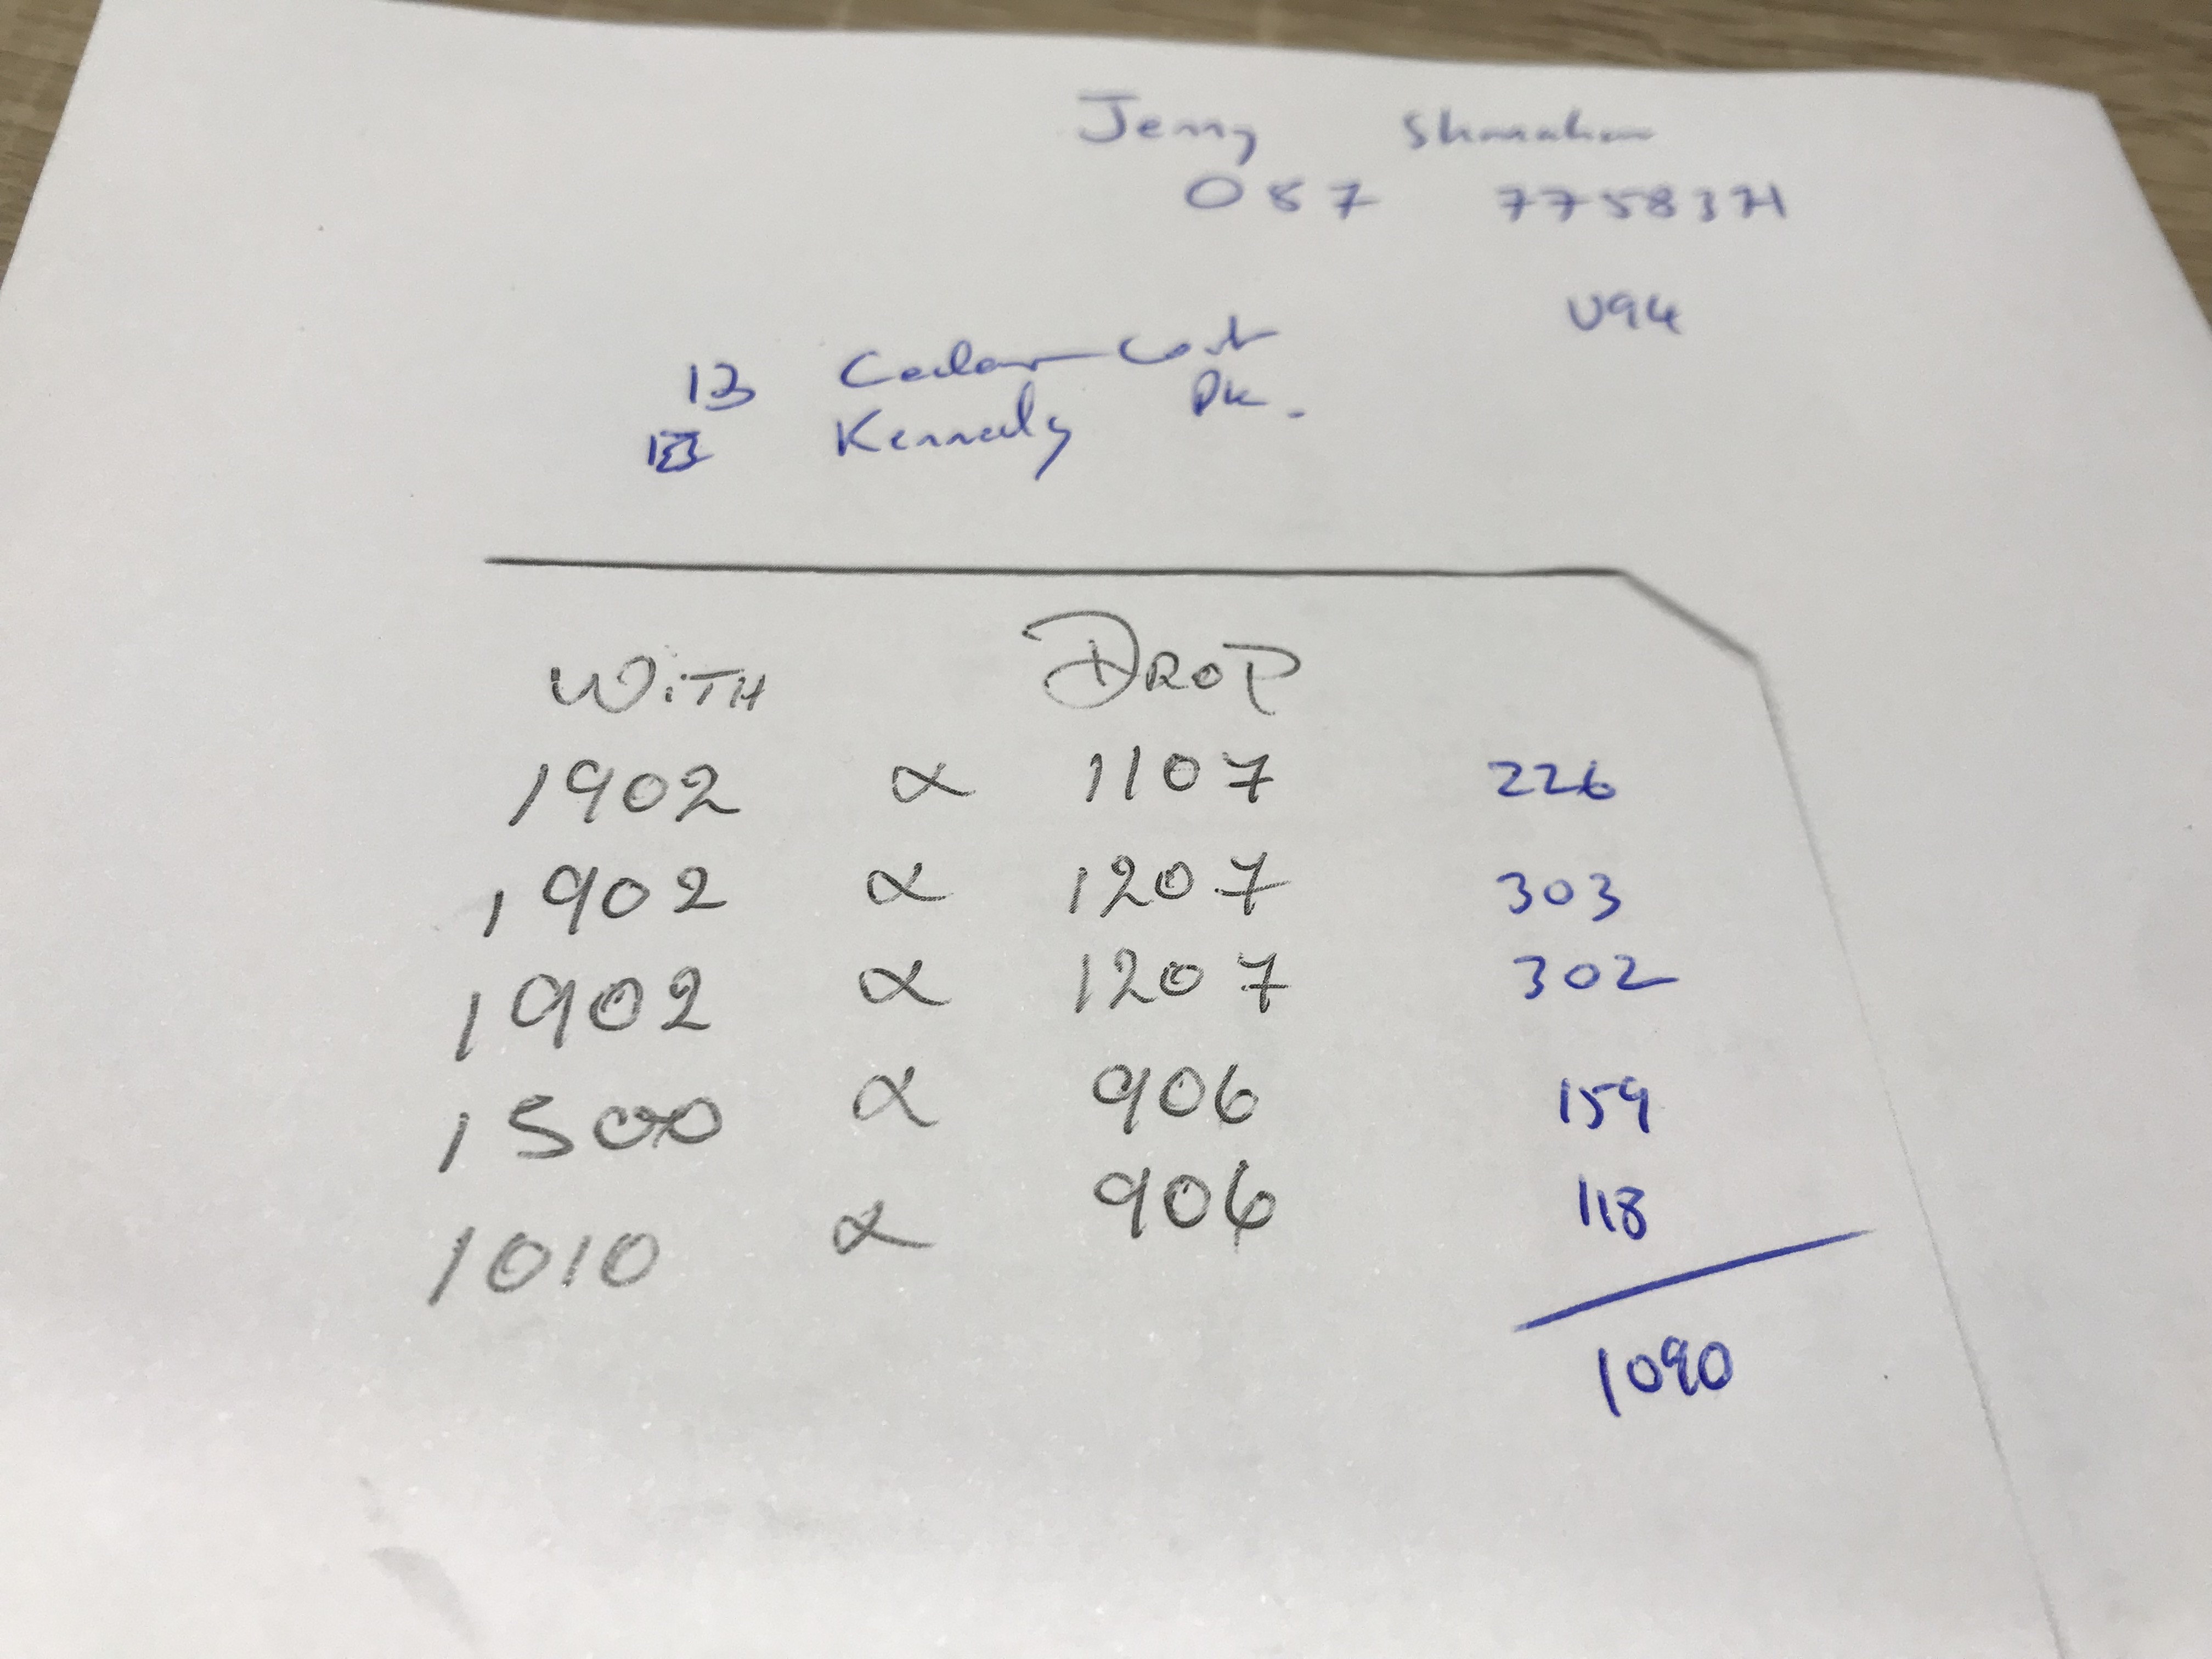 Jerry Shanahan
087 7758371
V94
13 Cedar Court
Kennedy Pk.
WiTH DROP
1902 x 1107 226
1902 x 1207 303
1902 x 1207 302
1500 x 906 159
1010 x 906 118
1090